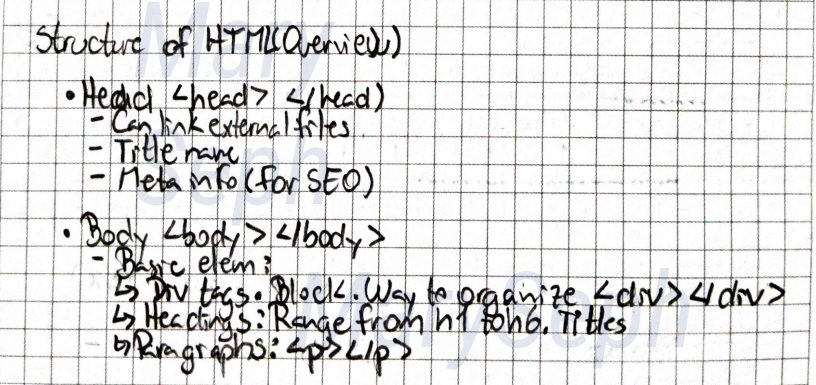 Structure of HTML(Overview)
• Head <head> </head)
- Can link external files
- Title name
- Meta info (for SEO)
• Body <body> </body>
- Basic elem:
↳ Div tags. Block. Way to organize <div> </div>
↳ Headings: Range from h1 to h6. Titles
↳ Paragraphs: <p></p>
Mary
Seph
MarySeph